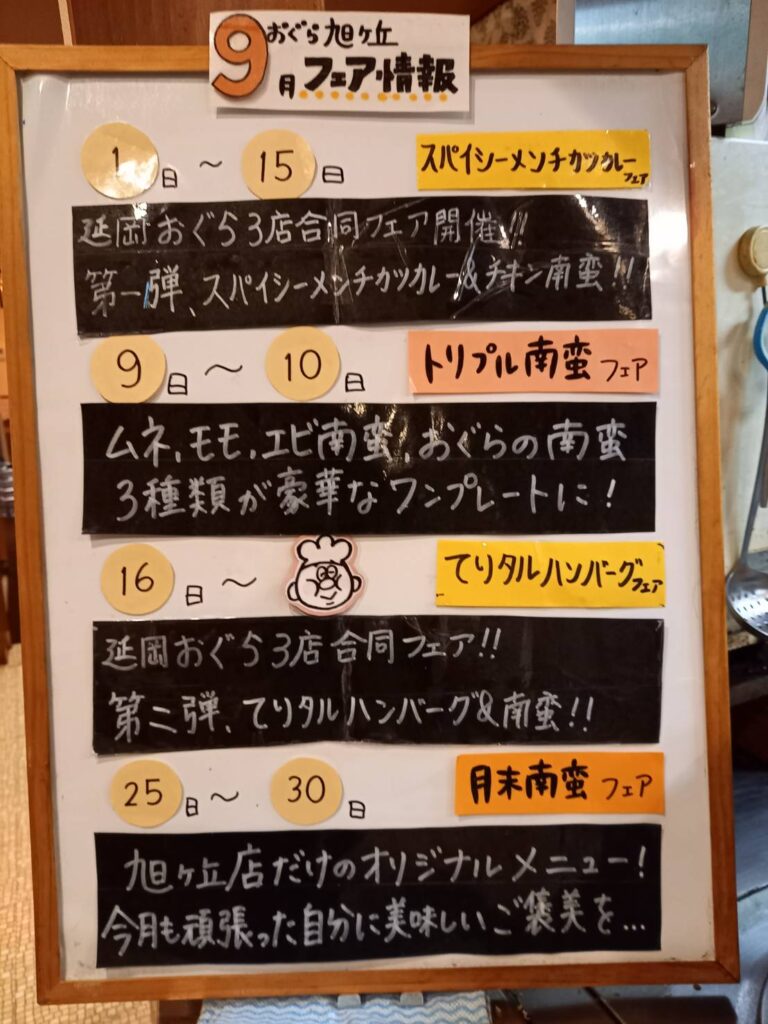 おぐら旭ヶ丘
9月フェア情報
1日～15日 スパイシーメンチカツカレーフェア
延岡おぐら3店合同フェア開催!!
第一弾、スパイシーメンチカツカレー&チキン南蛮!!
9日～10日 トリプル南蛮フェア
ムネ,モモ,エビ南蛮,おぐらの南蛮
3種類が豪華なワンプレートに!
16日～ てりタルハンバーグフェア
延岡おぐら3店合同フェア!!
第二弾、てりタルハンバーグ&南蛮!!
25日～30日 月末南蛮フェア
旭ヶ丘店だけのオリジナルメニュー!
今月も頑張った自分に美味しいご褒美を…